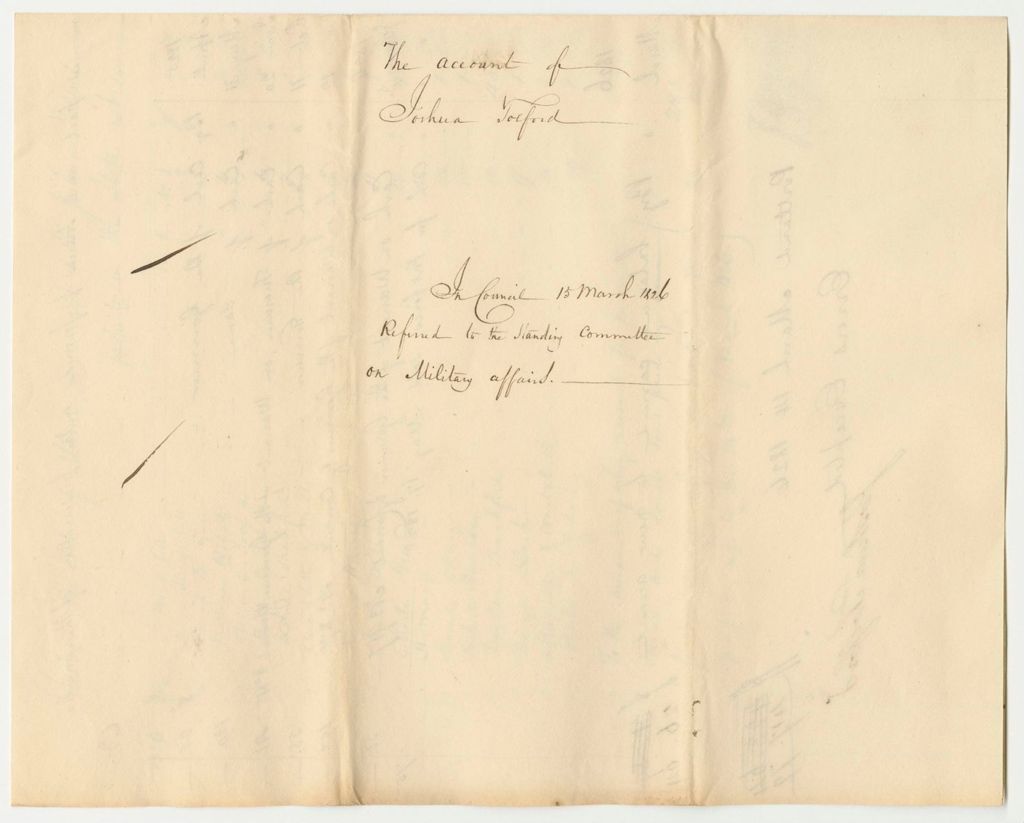 The account of
Joshua Tolford
In Council 15 March 1826
Referred to the Standing Committee
on Military affairs.